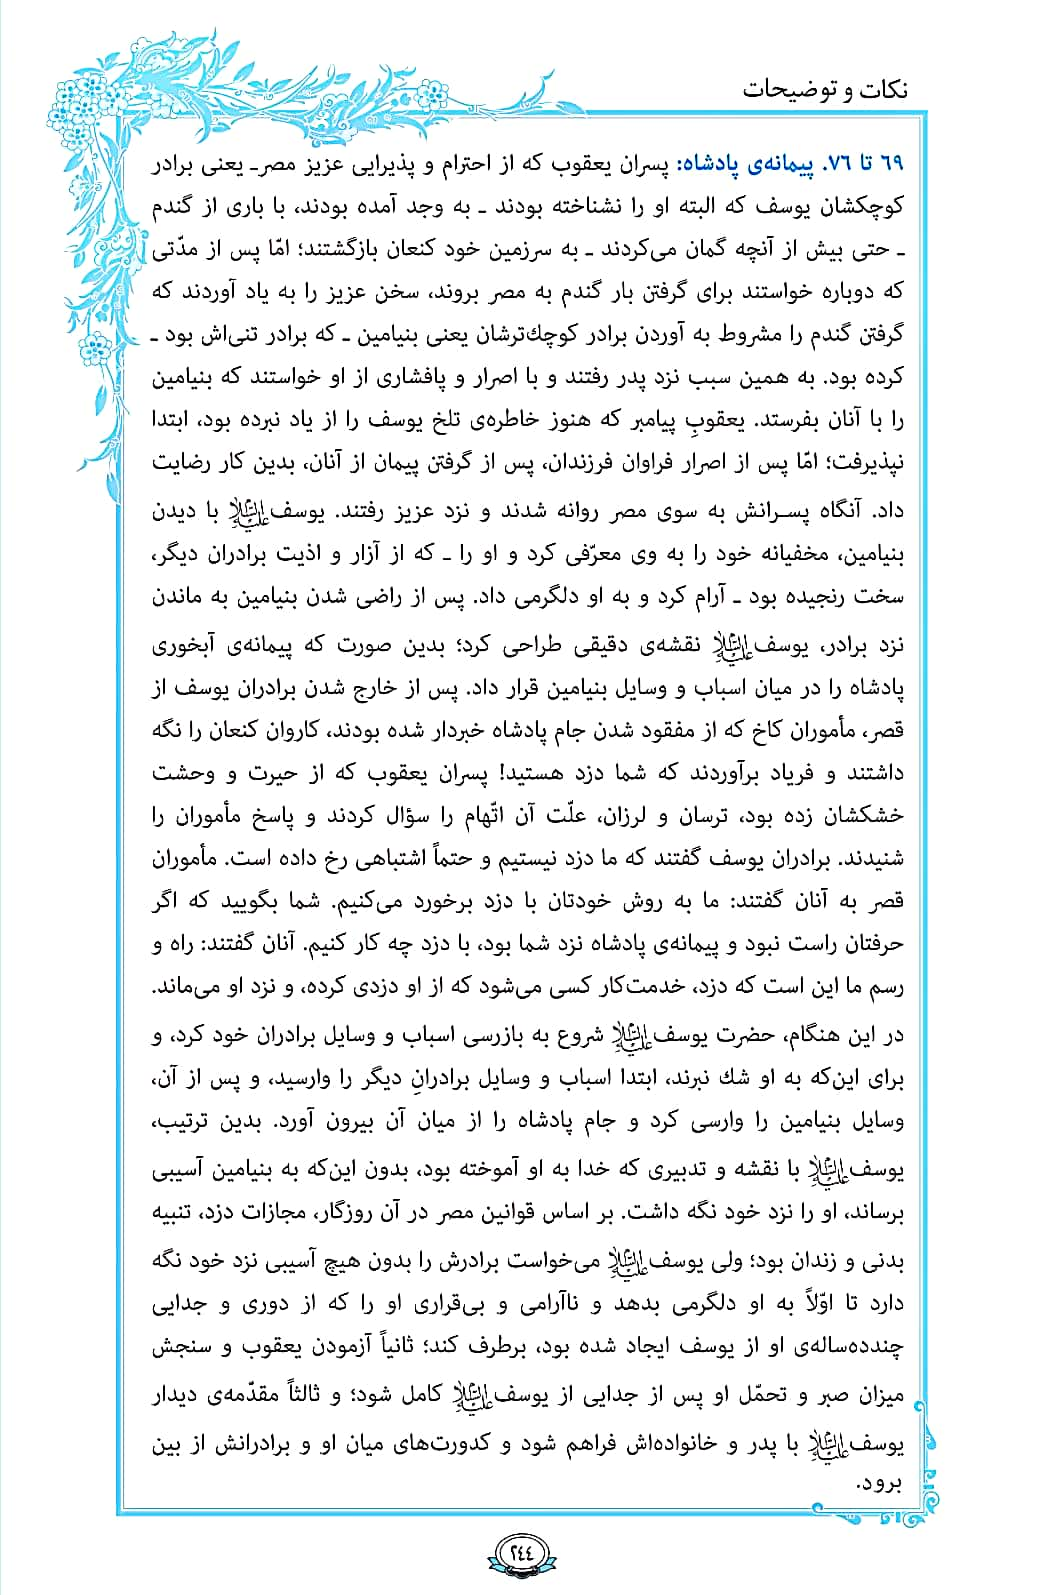 نکات و توضیحات
۶۹ تا ۷۶. پیمانه‌ی پادشاه: پسران یعقوب که از احترام و پذیرایی عزیز مصر ـ یعنی برادر
کوچکشان یوسف که البته او را نشناخته بودند ـ به وجد آمده بودند، با باری از گندم
ـ حتی بیش از آنچه گمان می‌کردند ـ به سرزمین خود کنعان بازگشتند؛ امّا پس از مدّتی
که دوباره خواستند برای گرفتن بار گندم به مصر بروند، سخن عزیز را به یاد آوردند که
گرفتن گندم را مشروط به آوردن برادر کوچك‌ترشان یعنی بنیامین ـ که برادر تنی‌اش بود ـ
کرده بود. به همین سبب نزد پدر رفتند و با اصرار و پافشاری از او خواستند که بنیامین
را با آنان بفرستد. یعقوبِ پیامبر که هنوز خاطره‌ی تلخ یوسف را از یاد نبرده بود، ابتدا
نپذیرفت؛ امّا پس از اصرار فراوان فرزندان، پس از گرفتن پیمان از آنان، بدین کار رضایت
داد. آنگاه پسرانش به سوی مصر روانه شدند و نزد عزیز رفتند. یوسف علیه‌السلام با دیدن
بنیامین، مخفیانه خود را به وی معرّفی کرد و او را ـ که از آزار و اذیت برادران دیگر،
سخت رنجیده بود ـ آرام کرد و به او دلگرمی داد. پس از راضی شدن بنیامین به ماندن
نزد برادر، یوسف علیه‌السلام نقشه‌ی دقیقی طراحی کرد؛ بدین صورت که پیمانه‌ی آبخوری
پادشاه را در میان اسباب و وسایل بنیامین قرار داد. پس از خارج شدن برادران یوسف از
قصر، مأموران کاخ که از مفقود شدن جام پادشاه خبردار شده بودند، کاروان کنعان را نگه
داشتند و فریاد برآوردند که شما دزد هستید! پسران یعقوب که از حیرت و وحشت
خشکشان زده بود، ترسان و لرزان، علّت آن اتّهام را سؤال کردند و پاسخ مأموران را
شنیدند. برادران یوسف گفتند که ما دزد نیستیم و حتماً اشتباهی رخ داده است. مأموران
قصر به آنان گفتند: ما به روش خودتان با دزد برخورد می‌کنیم. شما بگویید که اگر
حرفتان راست نبود و پیمانه‌ی پادشاه نزد شما بود، با دزد چه کار کنیم. آنان گفتند: راه و
رسم ما این است که دزد، خدمت‌کار کسی می‌شود که از او دزدی کرده، و نزد او می‌ماند.
در این هنگام، حضرت یوسف علیه‌السلام شروع به بازرسی اسباب و وسایل برادران خود کرد، و
برای این‌که به او شك نبرند، ابتدا اسباب و وسایل برادرانِ دیگر را وارسید، و پس از آن،
وسایل بنیامین را وارسی کرد و جام پادشاه را از میان آن بیرون آورد. بدین ترتیب،
یوسف علیه‌السلام با نقشه و تدبیری که خدا به او آموخته بود، بدون این‌که به بنیامین آسیبی
برساند، او را نزد خود نگه داشت. بر اساس قوانین مصر در آن روزگار، مجازات دزد، تنبیه
بدنی و زندان بود؛ ولی یوسف علیه‌السلام می‌خواست برادرش را بدون هیچ آسیبی نزد خود نگه
دارد تا اوّلاً به او دلگرمی بدهد و ناآرامی و بی‌قراری او را که از دوری و جدایی
چندده‌ساله‌ی او از یوسف ایجاد شده بود، برطرف کند؛ ثانیاً آزمودن یعقوب و سنجش
میزان صبر و تحمّل او پس از جدایی از یوسف علیه‌السلام کامل شود؛ و ثالثاً مقدّمه‌ی دیدار
یوسف علیه‌السلام با پدر و خانواده‌اش فراهم شود و کدورت‌های میان او و برادرانش از بین
برود.
۲۴۴